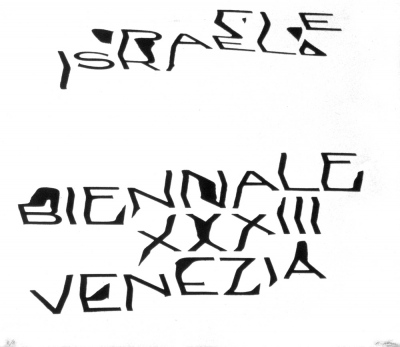 ISRAELE
BIENNALE
XXXIII
VENEZIA